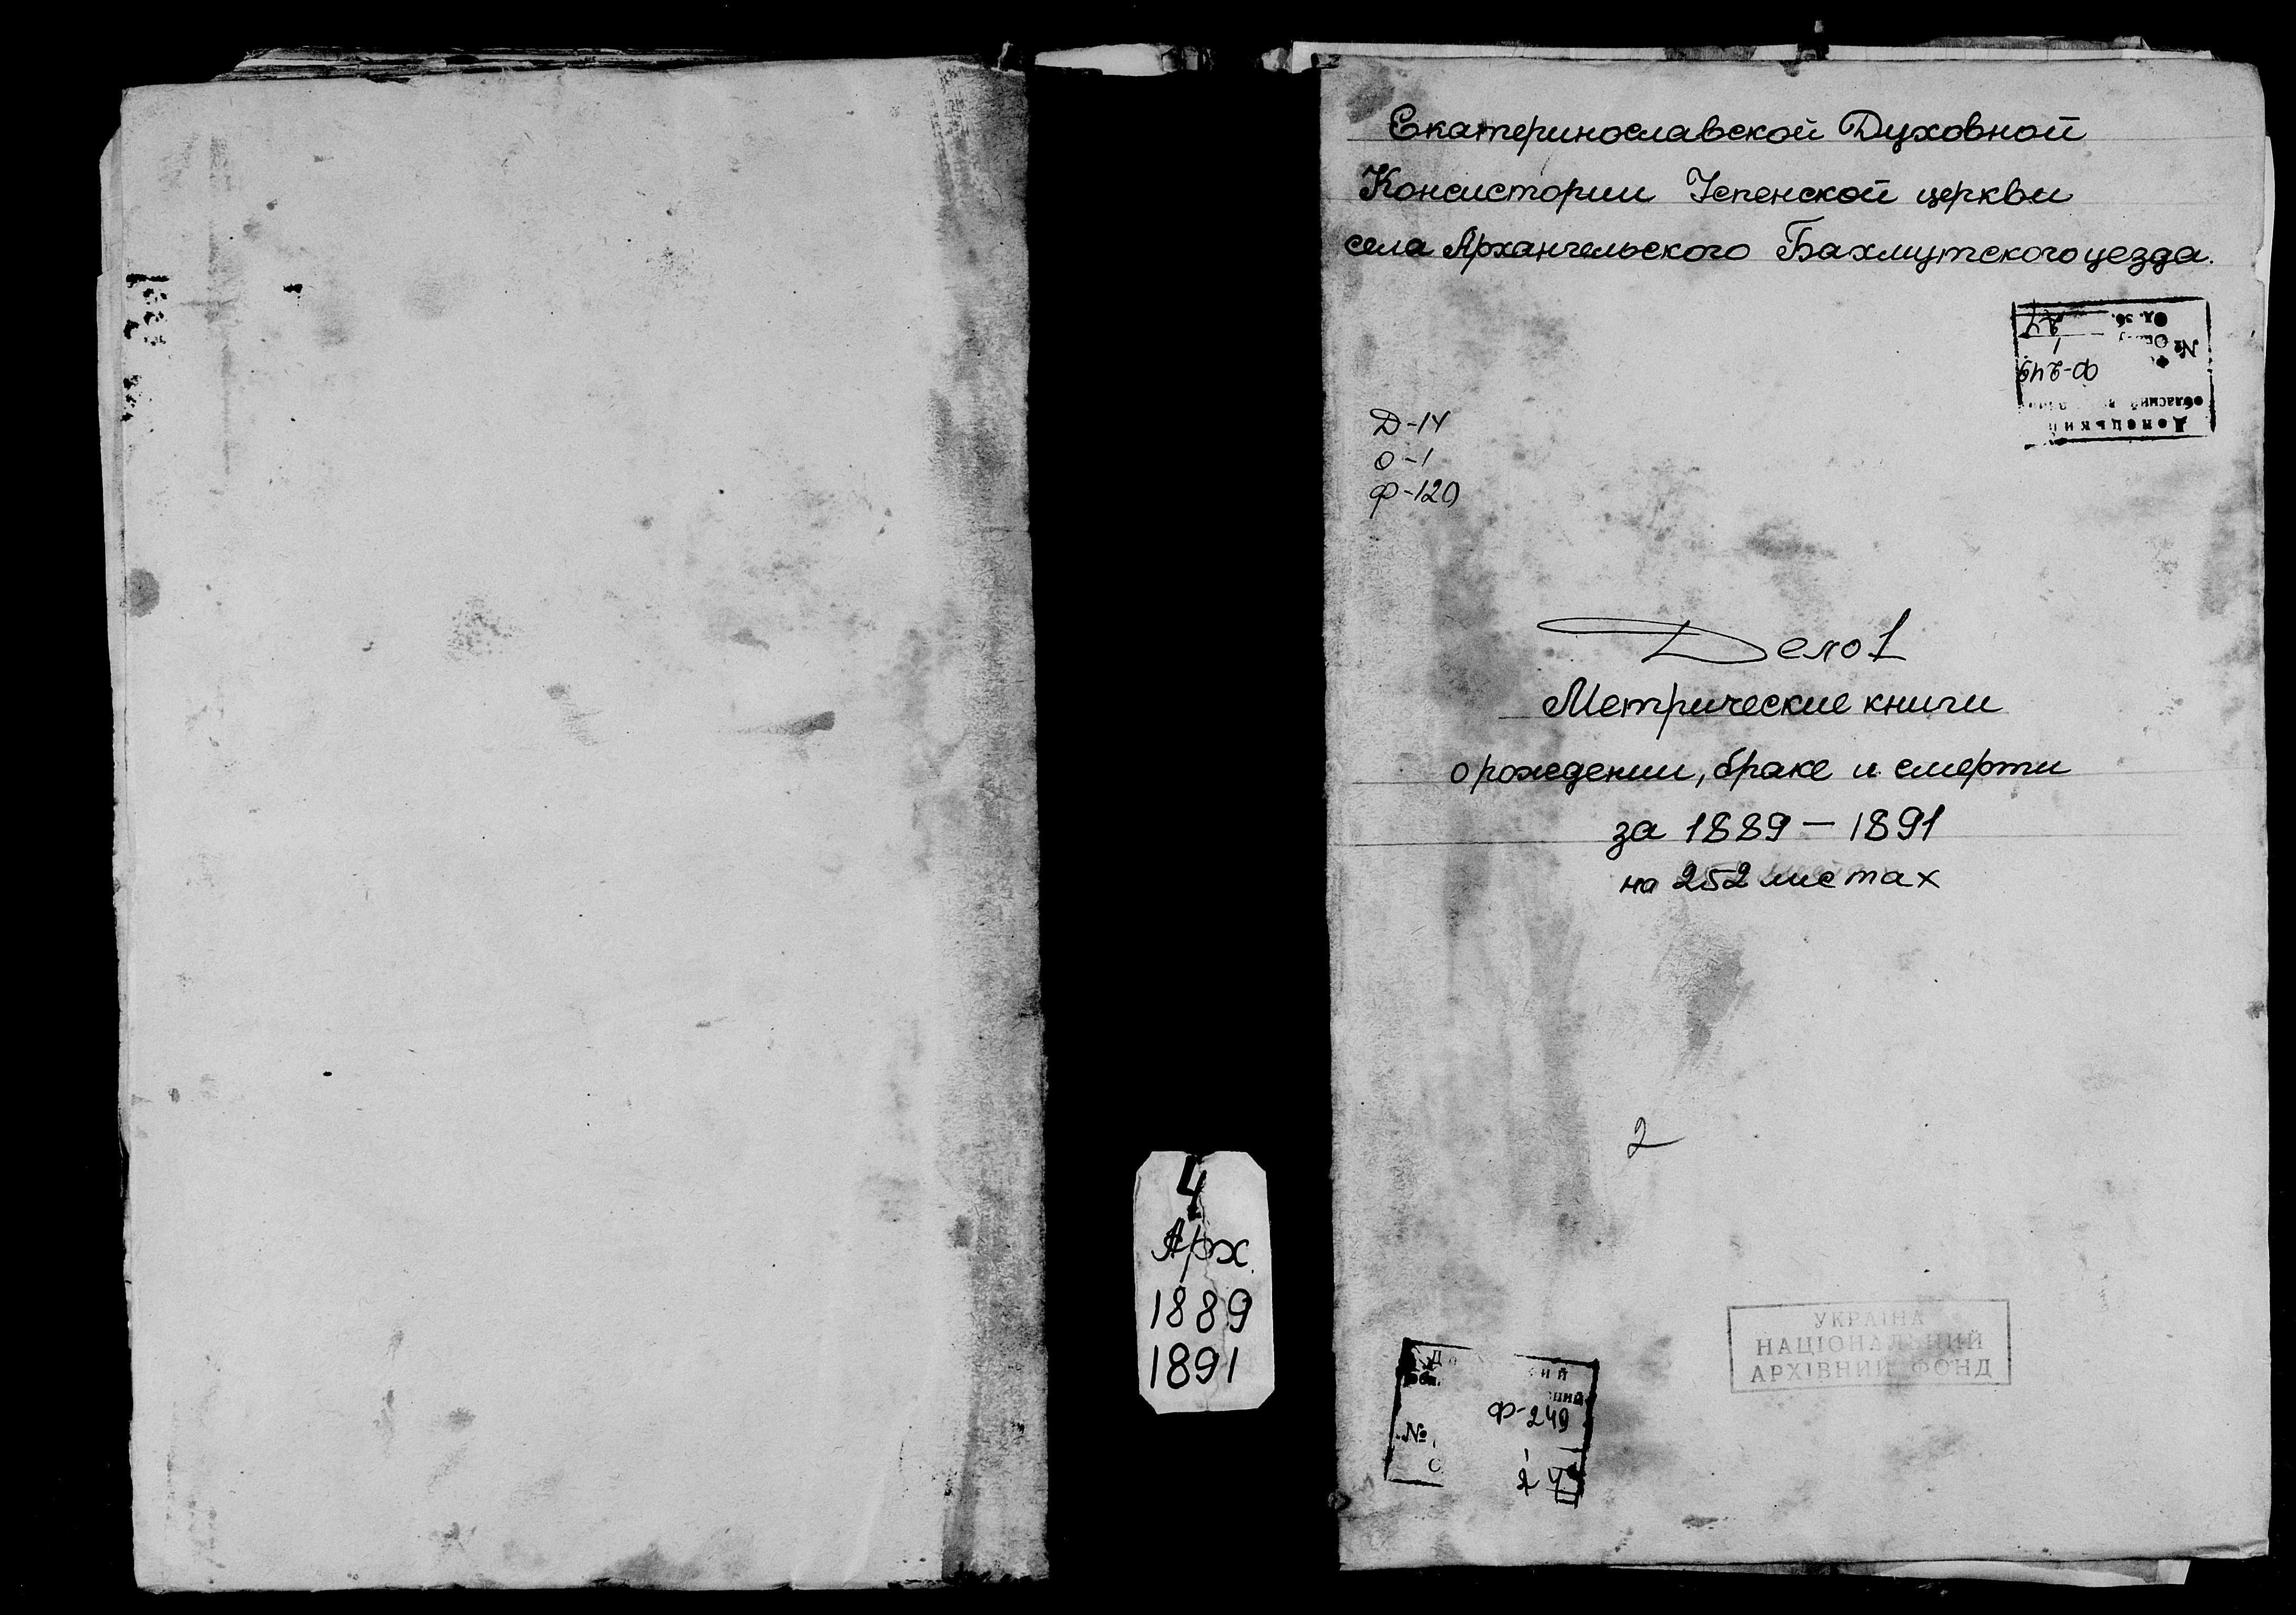 Екатеринославской Духовной
Консистории Успенской церкви
села Архангельского Бахмутского уезда.
Донецький
обласний
Ф-249
№
1
Од. зб. 24
Д-14
О-1
Ф-120
Дело 1
Метрические книги
о рождении, браке и смерти
за 1889 – 1891
на 252 листах
2
4
Арх.
1889
1891
УКРАЇНА
НАЦІОНАЛЬНИЙ
АРХІВНИЙ ФОНД
Ф-249
№
1
24